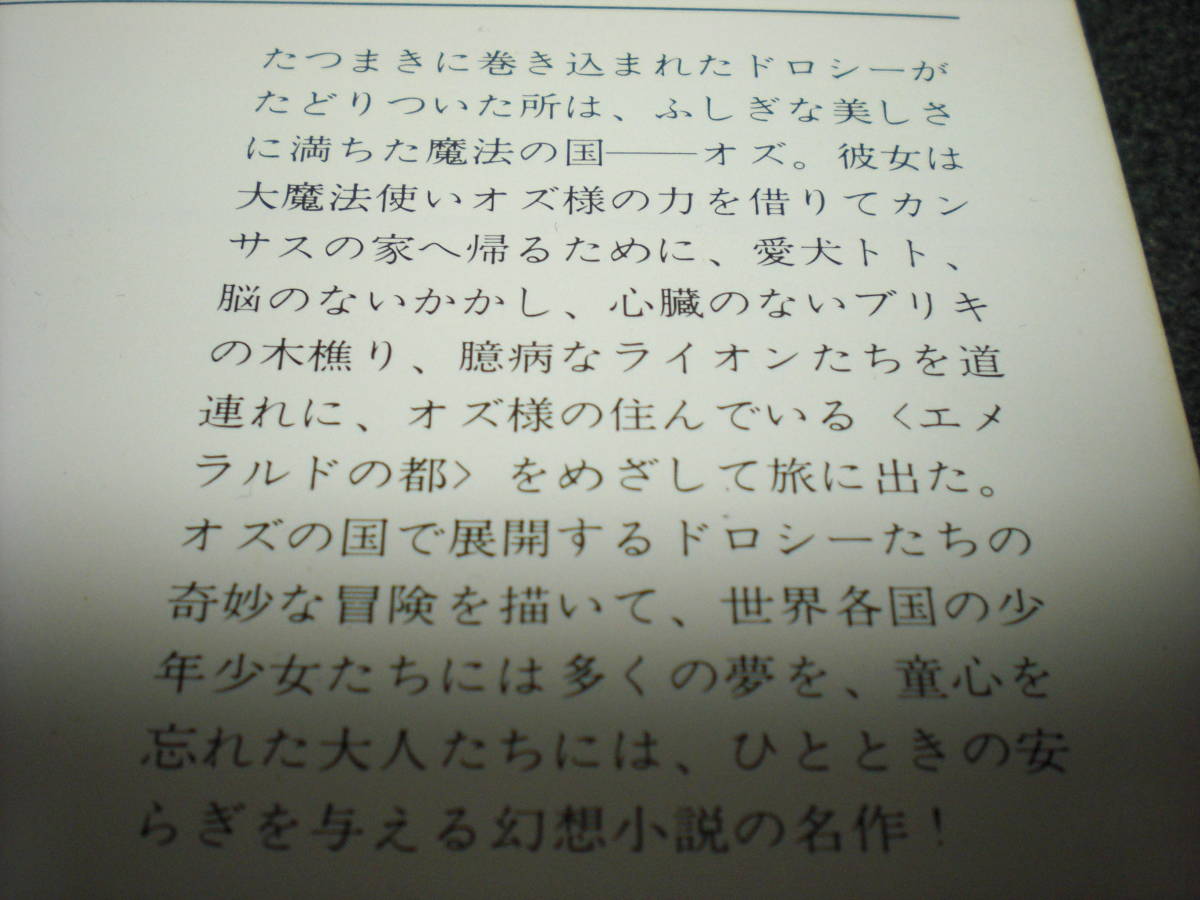 たつまきに巻き込まれたドロシーが
たどりついた所は、ふしぎな美しさ
に満ちた魔法の国――オズ。彼女は
大魔法使いオズ様の力を借りてカン
サスの家へ帰るために、愛犬トト、
脳のないかかし、心臓のないブリキ
の木樵り、臆病なライオンたちを道
連れに、オズ様の住んでいる〈エメ
ラルドの都〉をめざして旅に出た。
オズの国で展開するドロシーたちの
奇妙な冒険を描いて、世界各国の少
年少女たちには多くの夢を、童心を
忘れた大人たちには、ひとときの安
らぎを与える幻想小説の名作！